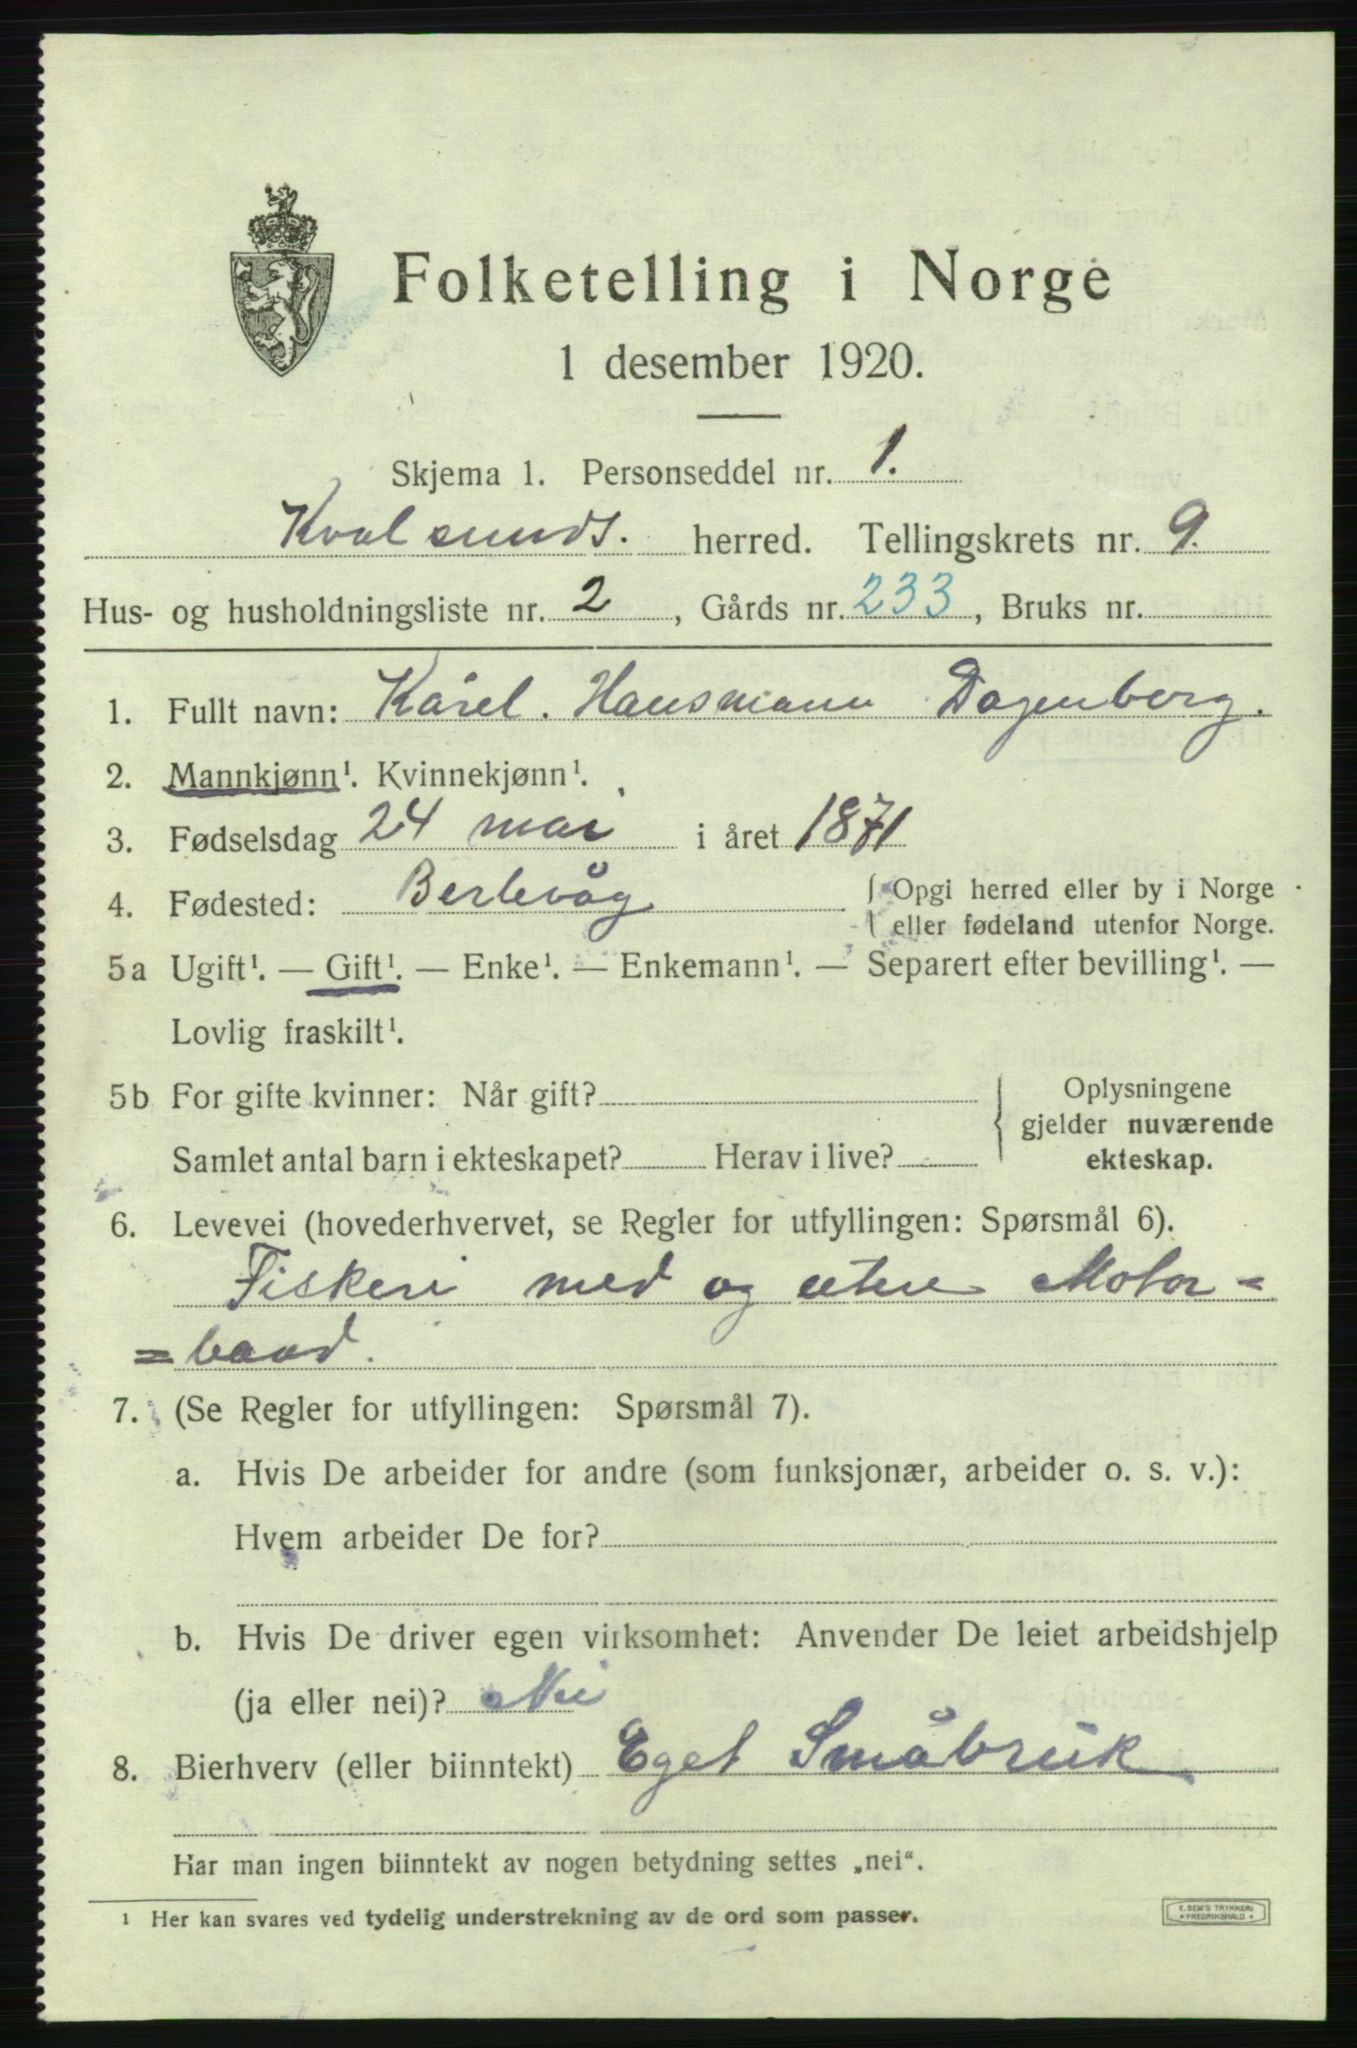 Folketelling i Norge
1 desember 1920.
Skjema 1. Personseddel nr. 1.
Kvalsunds. herred. Tellingskrets nr. 9.
Hus- og husholdningsliste nr. 2, Gårds nr. 233, Bruks nr.
1. Fullt navn: Kårel. Hansmann Dagenborg.
2. Mannkjønn¹. Kvinnekjønn¹.
3. Fødselsdag 24 mai i året 1871
4. Fødested: Berlevåg { Opgi herred eller by i Norge
{ eller fødeland utenfor Norge.
5a Ugift¹. — Gift¹. — Enke¹. — Enkemann¹. — Separert efter bevilling¹. —
Lovlig fraskilt¹.
5b For gifte kvinner: Når gift? { Oplysningene
gjelder nuværende
Samlet antal barn i ekteskapet? Herav i live? ekteskap.
6. Levevei (hovederhvervet, se Regler for utfyllingen: Spørsmål 6).
Fiskeri med og uten Motor=
=baad.
7. (Se Regler for utfyllingen: Spørsmål 7).
a. Hvis De arbeider for andre (som funksjonær, arbeider o. s. v.):
Hvem arbeider De for?
b. Hvis De driver egen virksomhet: Anvender De leiet arbeidshjelp
(ja eller nei)? Nei
8. Bierhverv (eller biinntekt) Eget Småbruk
Har man ingen biinntekt av nogen betydning settes „nei“.
¹ Her kan svares ved tydelig understrekning av de ord som passer.
E. SEM'S TRYKKERI
* FREDRIKSHALD *